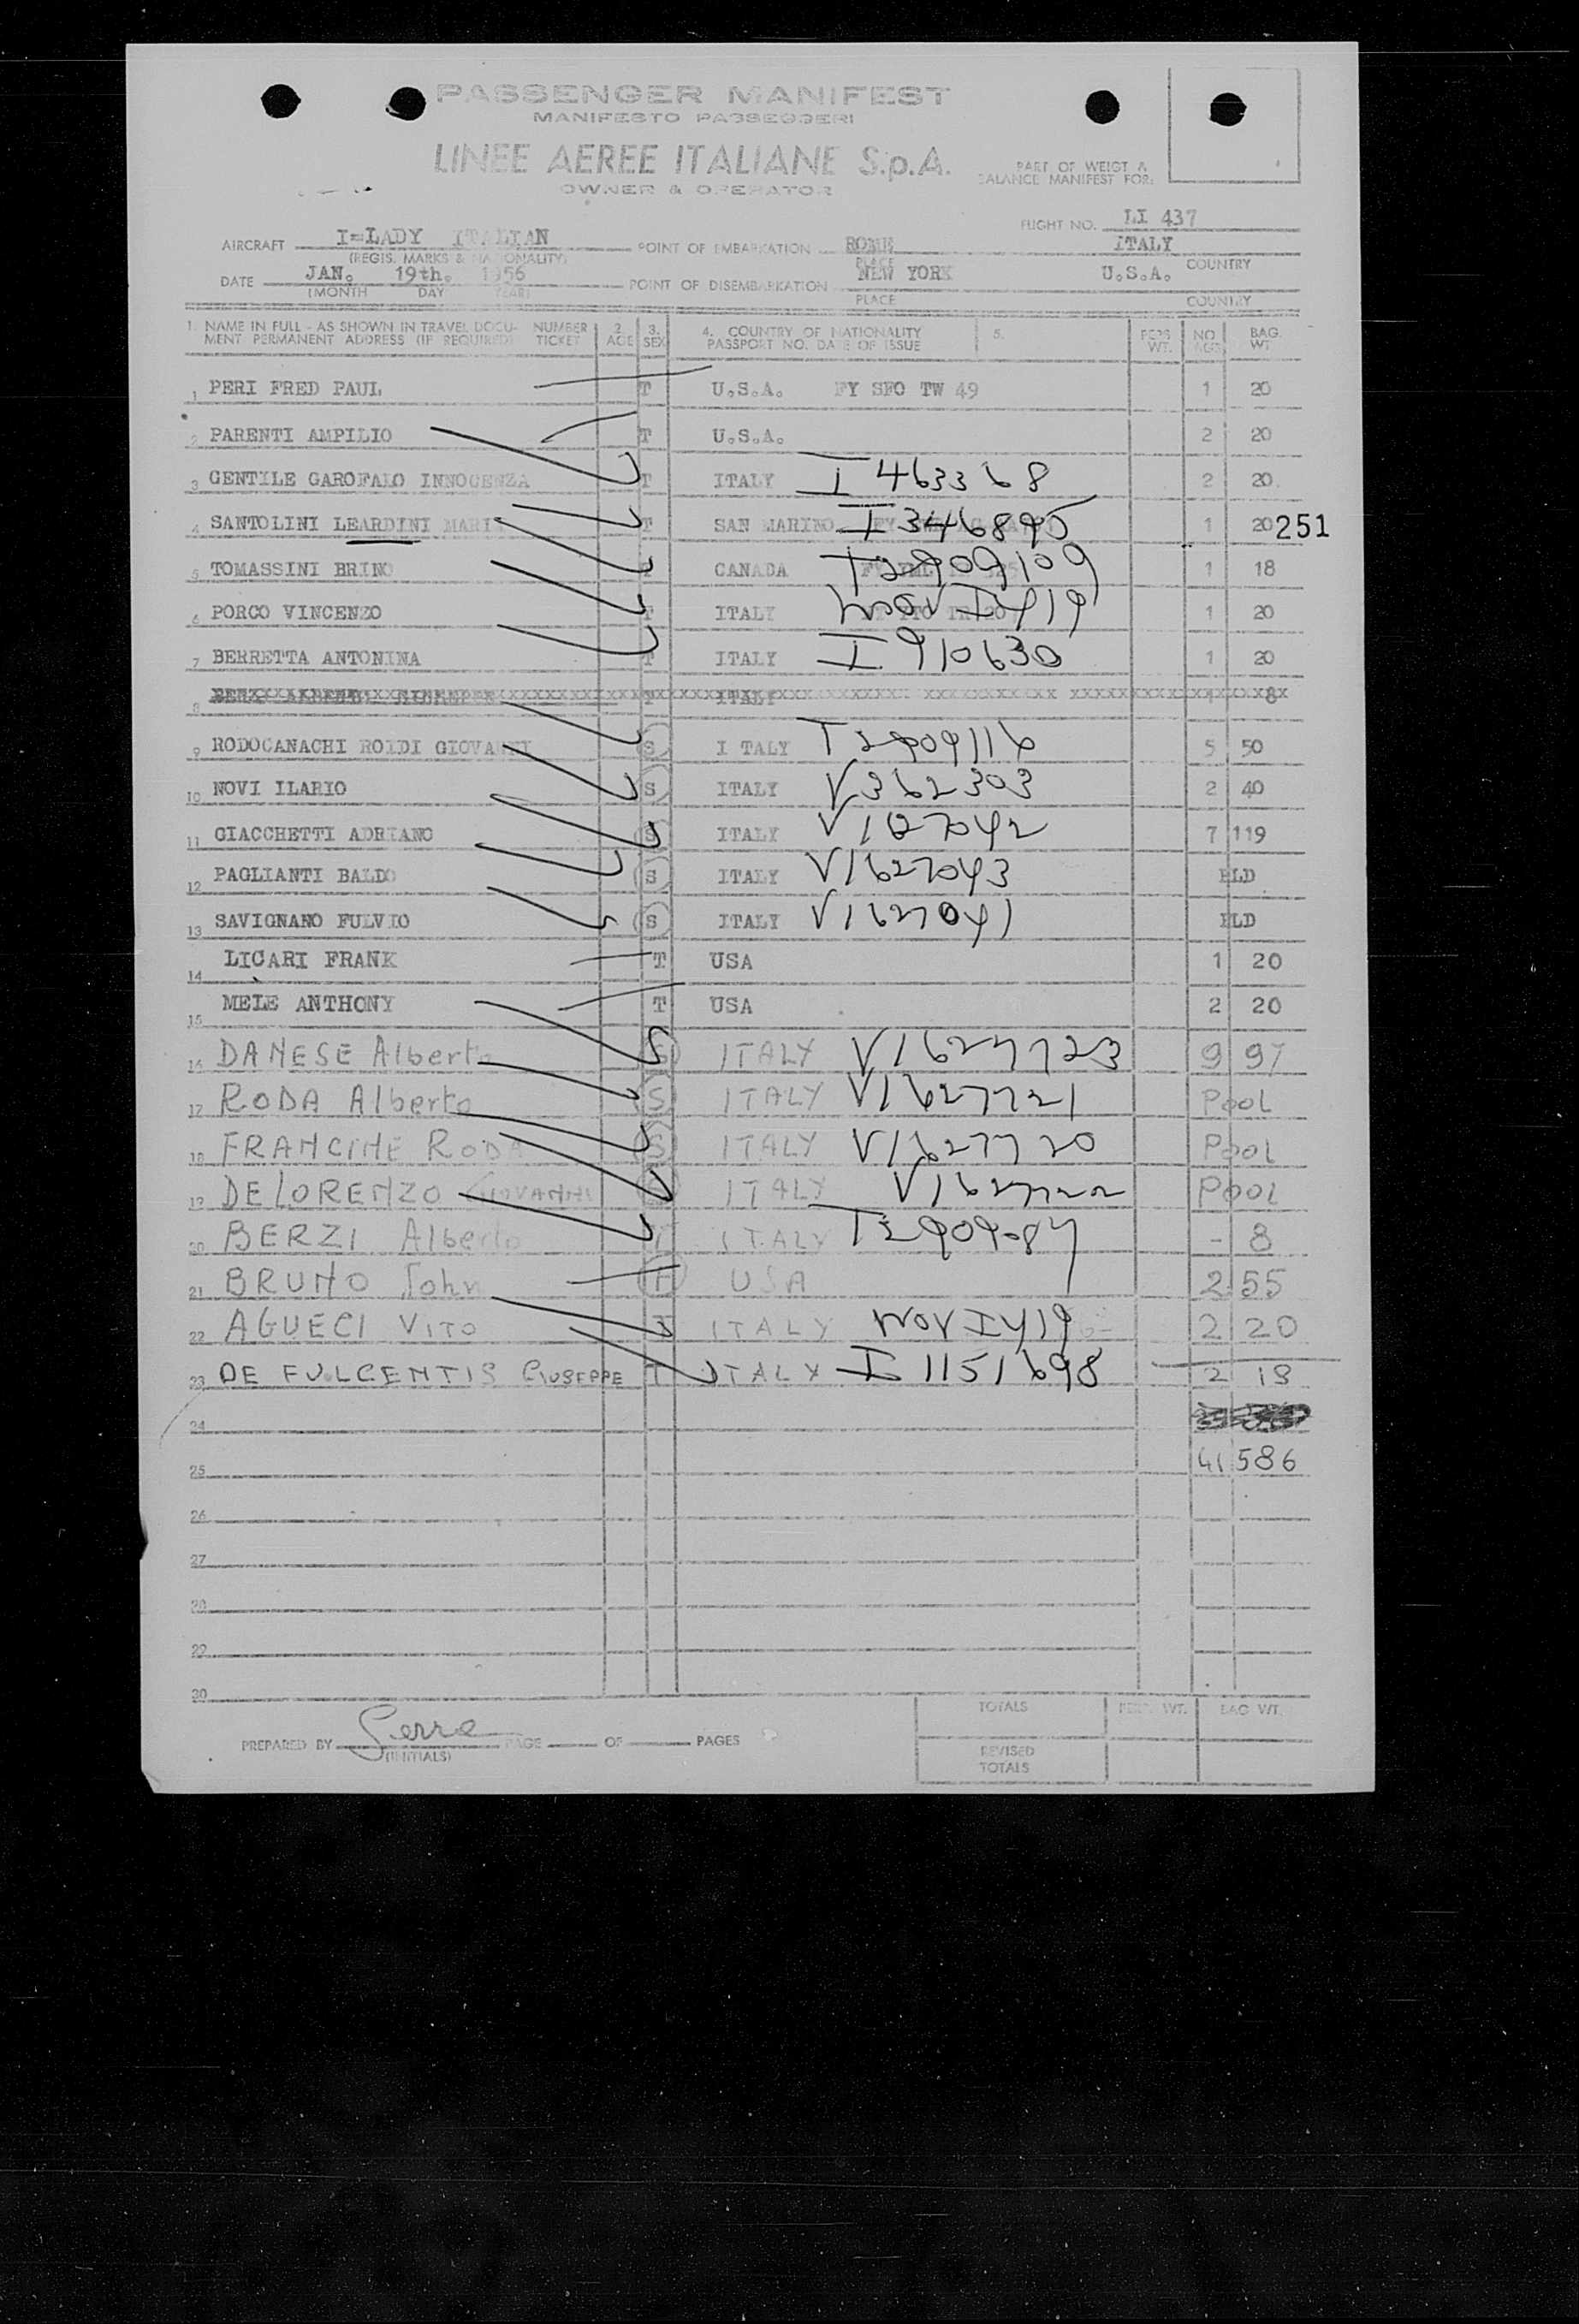 PASSENGER MANIFEST
MANIFESTO PASSEGGERI
LINEE AEREE ITALIANE S.p.A.
OWNER & OPERATOR
PART OF WEIGT &
BALANCE MANIFEST FOR:
FLIGHT NO. LI 437
AIRCRAFT I-LADY ITALIAN POINT OF EMBARKATION ROME ITALY
(REGIS. MARKS & NATIONALITY) PLACE COUNTRY
DATE JAN. 19th. 1956 POINT OF DISEMBARKATION NEW YORK U.S.A.
(MONTH DAY YEAR) PLACE COUNTRY
1. NAME IN FULL - AS SHOWN IN TRAVEL DOCU- NUMBER 2. 3. 4. COUNTRY OF NATIONALITY 5. PERS NO. BAG.
MENT PERMANENT ADDRESS (IF REQUIRED) TICKET AGE SEX PASSPORT NO. DATE OF ISSUE WT. AGE WT.
1 PERI FRED PAUL T U.S.A. FY SFO TW 49 1 20
2 PARENTI AMPILIO T U.S.A. 2 20
3 GENTILE GAROFALO INNOCENZA T ITALY I 463368 2 20
4 SANTOLINI LEARDINI MARIA T SAN MARINO I 346895 1 20 251
5 TOMASSINI BRINO T CANADA T2909109 1 18
6 PORCO VINCENZO T ITALY 1 20
7 BERRETTA ANTONINA T ITALY I 910630 1 20
8 T ITALY 8
9 RODOCANACHI ROIDI GIOVANNI S I TALY T2909116 5 50
10 NOVI ILARIO S ITALY V362303 2 40
11 GIACCHETTI ADRIANO S ITALY 7 119
12 PAGLIANTI BALDO S ITALY V1627043 PLD
13 SAVIGNANO FULVIO S ITALY V1627041 PLD
14 LICARI FRANK T USA 1 20
15 MELE ANTHONY T USA 2 20
16 DANESE Alberto S ITALY V1627723 9 97
17 RODA Alberto S ITALY V1627721 Pool
18 FRANCINE RODA S ITALY V1627720 Pool
19 DELORENZO GIOVANNI S ITALY V1627722 Pool
20 BERZI Alberto T ITALY - 8
21 BRUNO John F USA 2 55
22 AGUECI VITO T ITALY 2 20
23 DE FULGENTIS GIUSEPPE T ITALY I 1151698 2 18
24
25 41 586
26
27
28
29
30
TOTALS PERS. WT. BAG WT.
PREPARED BY Serra PAGE OF PAGES
(INITIALS)
REVISED
TOTALS